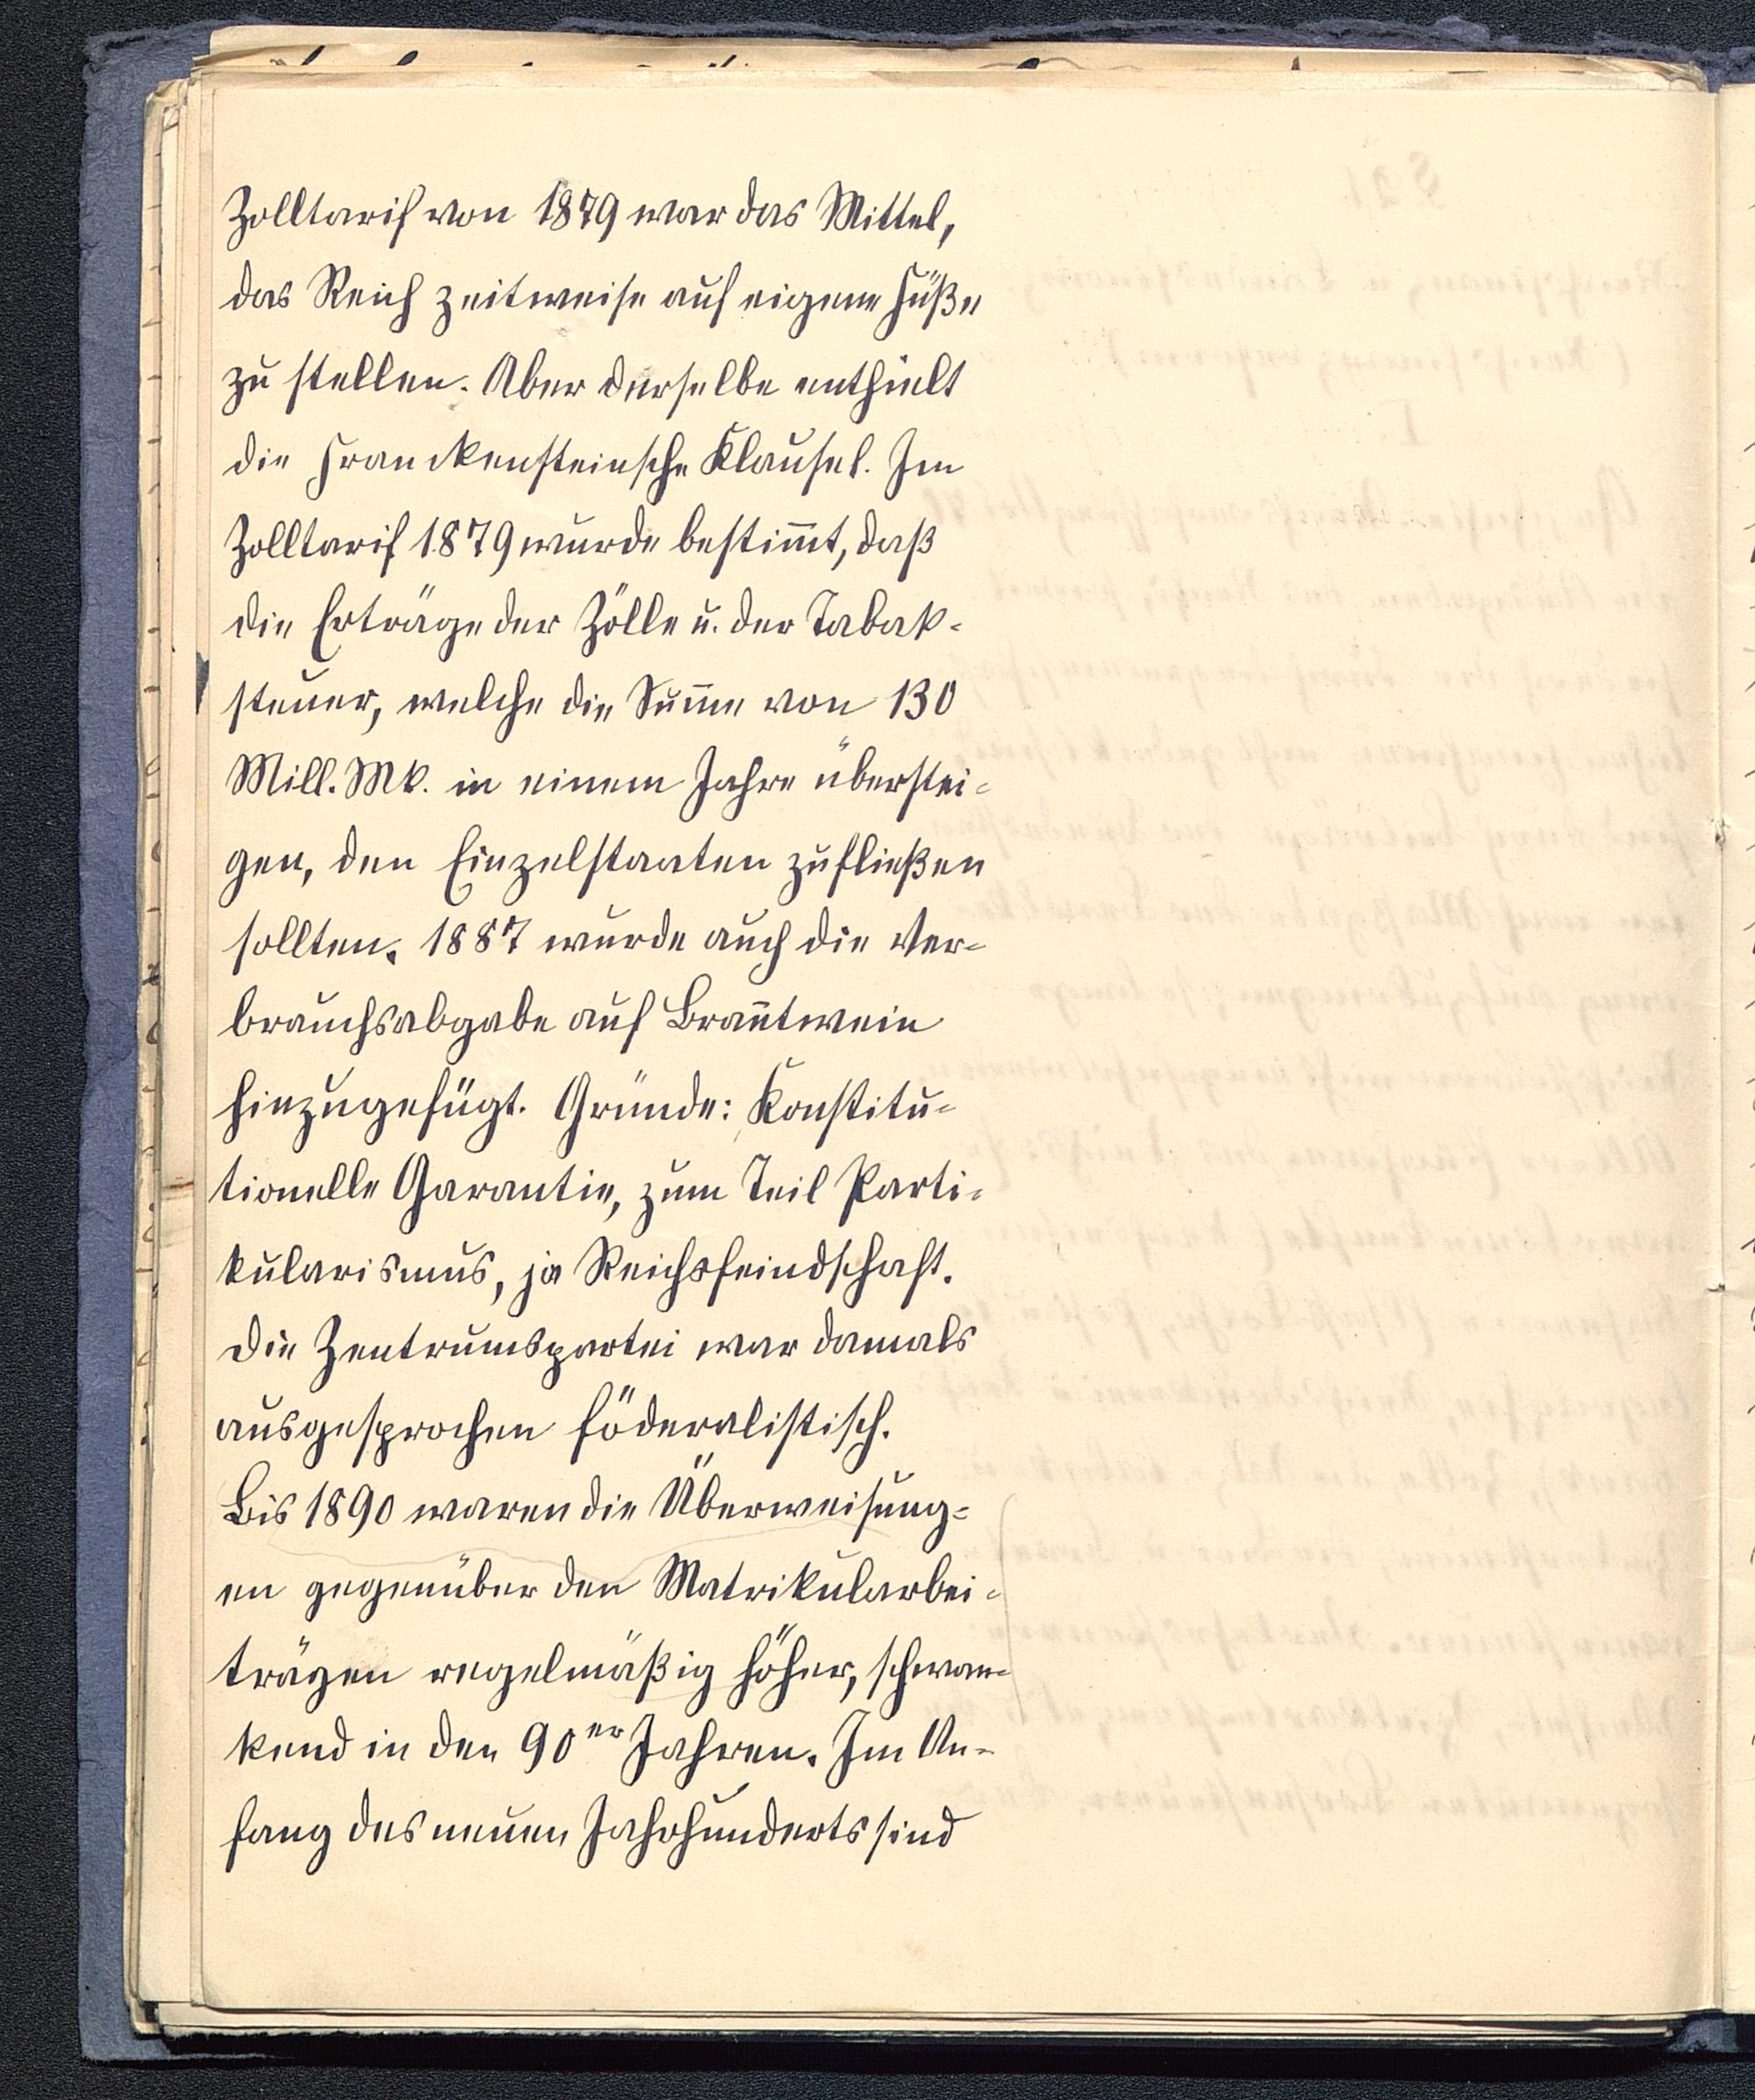 Zolltarif von 1879 war das Mittel,
das Reich zeitweise auf eigene Füße
zu stellen. Aber derselbe enthielt
die Franckensteinsche Klausel. Im
Zolltarif 1879 wurde bestim̅t, daß
die Erträge der Zölle u. der Tabak-
steuer, welche die Sum̅e von 130
Mill. Mk. in einem Jahre überstei-
gen, den Einzelstaaten zufließen
sollten. 1887 wurde auch die Ver-
brauchsabgabe auf Bran̅twein
hinzugefügt. Gründe: Konstitu-
tionelle Garantie, zum Teil Parti-
kularismus, ja Reichsfeindschaft.
Die Zentrumspartei war damals
ausgesprochen föderalistisch.
Bis 1890 waren die Überweisung-
en gegenüber den Matrikularbei-
trägen regelmäßig höher, schwan-
kend in den 90er Jahren. Im An-
fang des neuen Jahrhunderts sind